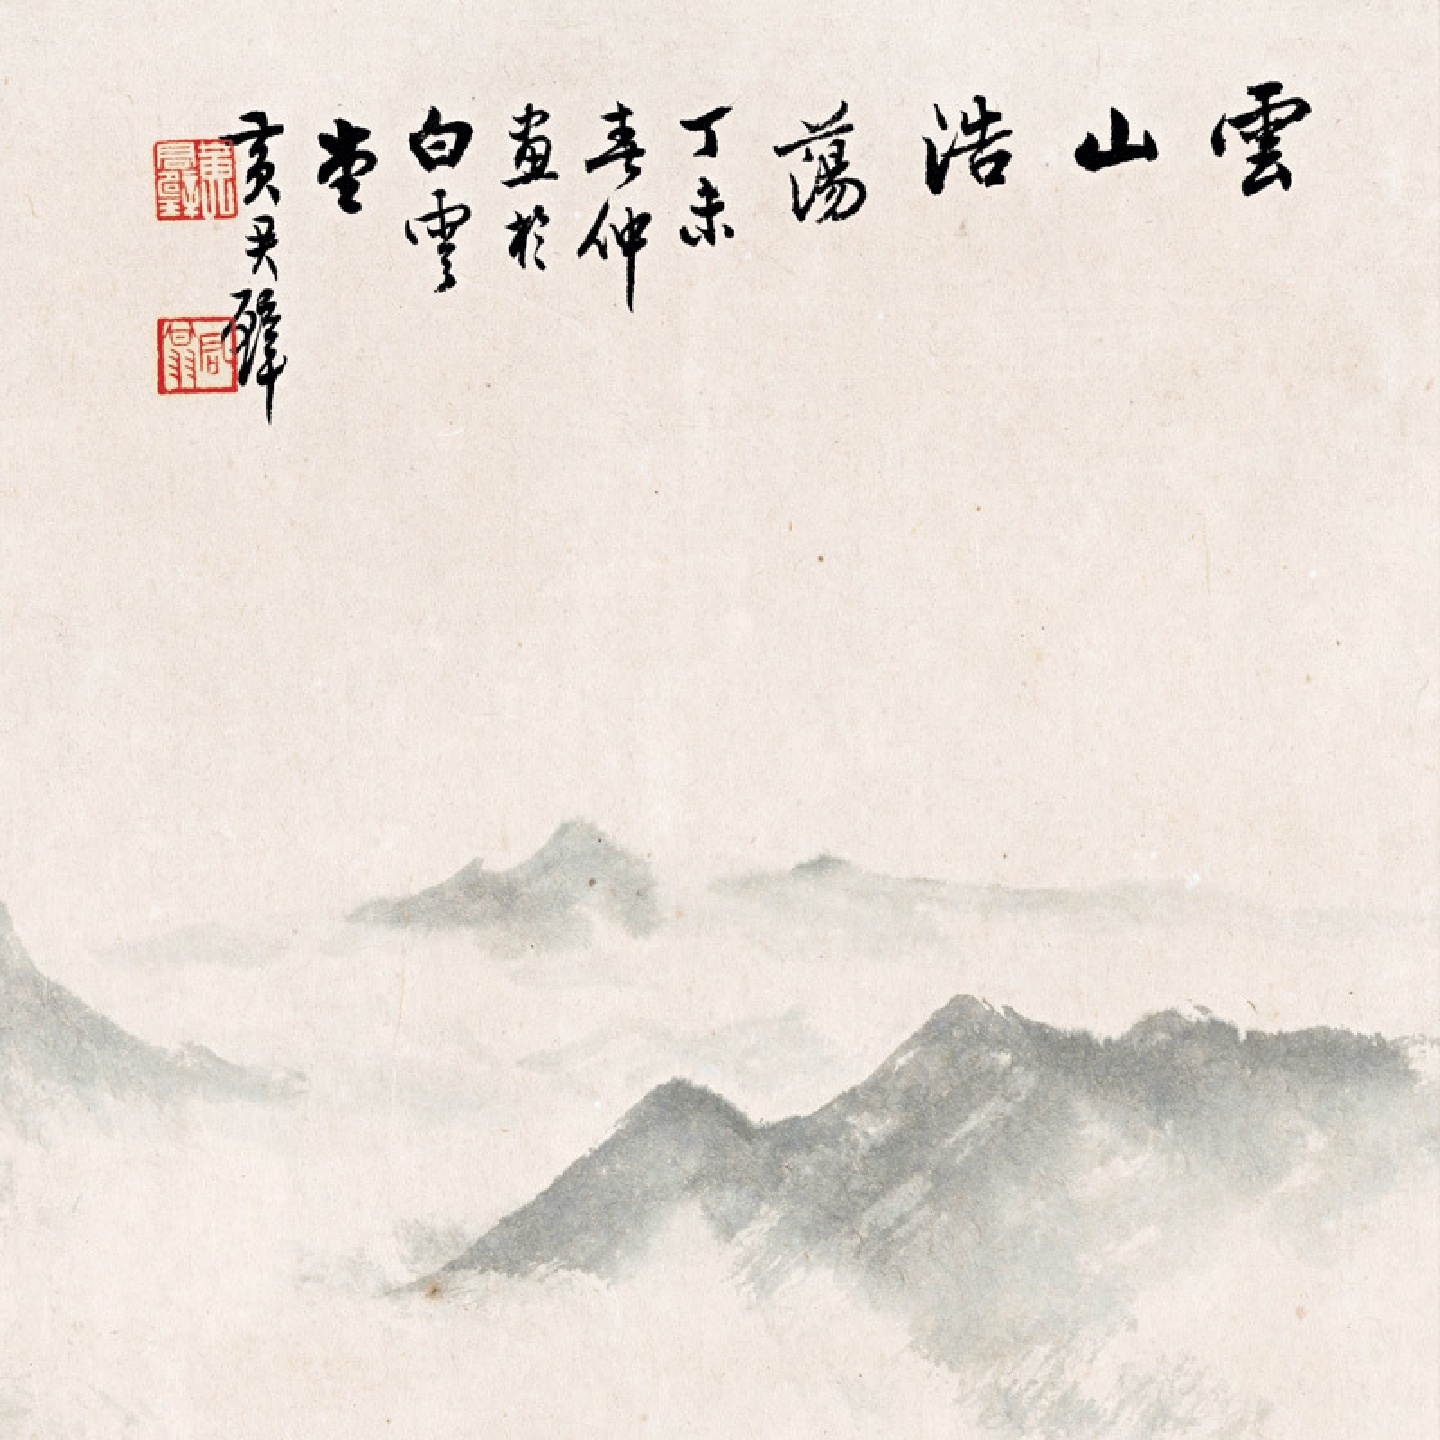 雲
山
浩
蕩
丁未
春仲
畫於
白雲
堂
黃君璧